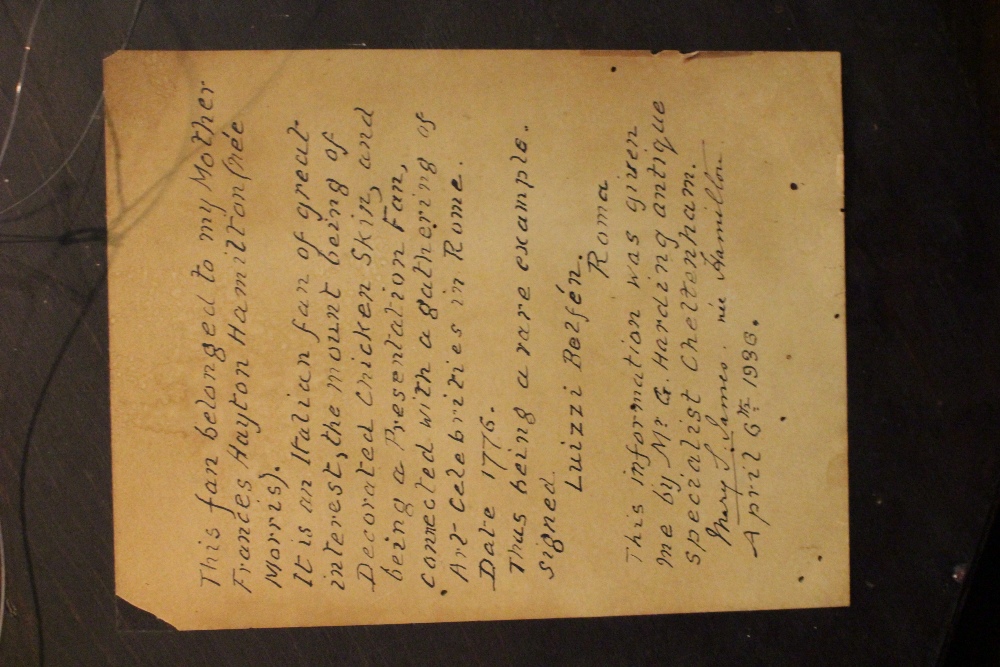 This fan belonged to my Mother
Frances Hayton Hamilton (née
Morris).
It is an Italian fan of great
interest, the mount being of
Decorated Chicken Skin, and
being a Presentation Fan,
connected with a gathering of
Art-Celebrities in Rome.
Date 1776.
Thus being a rare example.
signed
Luizzi Belfén.
Roma
This information was given
me by Mr G. Harding antique
specialist Cheltenham.
Mary S. James. née Hamilton.
April 6th 1936.